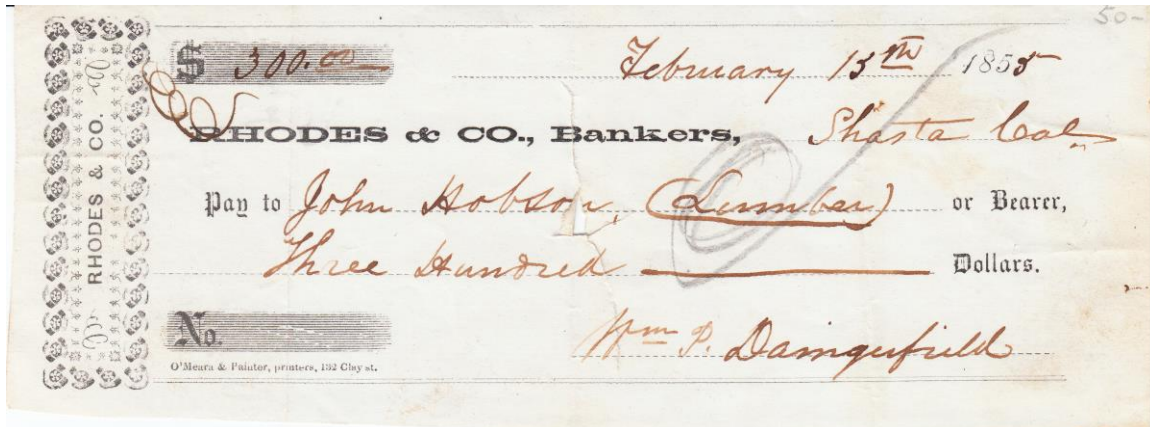 50-
$ 300.00
February 15th 1855
RHODES & CO., Bankers, Shasta Cal.
Pay to John Hobson, (Lumber) or Bearer,
Three Hundred Dollars.
No.
Wm P. Daingerfield
O'Meara & Painter, printers, 132 Clay st.
RHODES & CO.